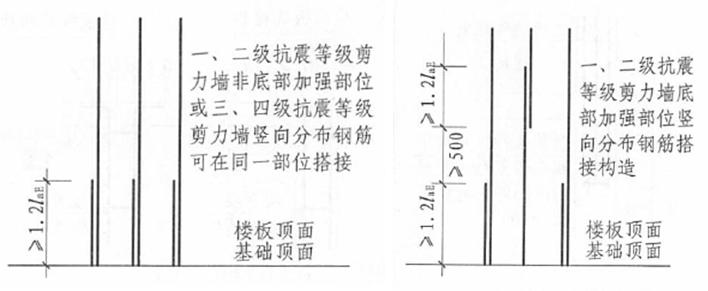 一、二级抗震等级剪
力墙非底部加强部位
或三、四级抗震等级
剪力墙竖向分布钢筋
可在同一部位搭接
≥1.2laE
楼板顶面
基础顶面
一、二级抗震
等级剪力墙底
部加强部位竖
向分布钢筋搭
接构造
≥1.2laE
≥500
≥1.2laE
楼板顶面
基础顶面